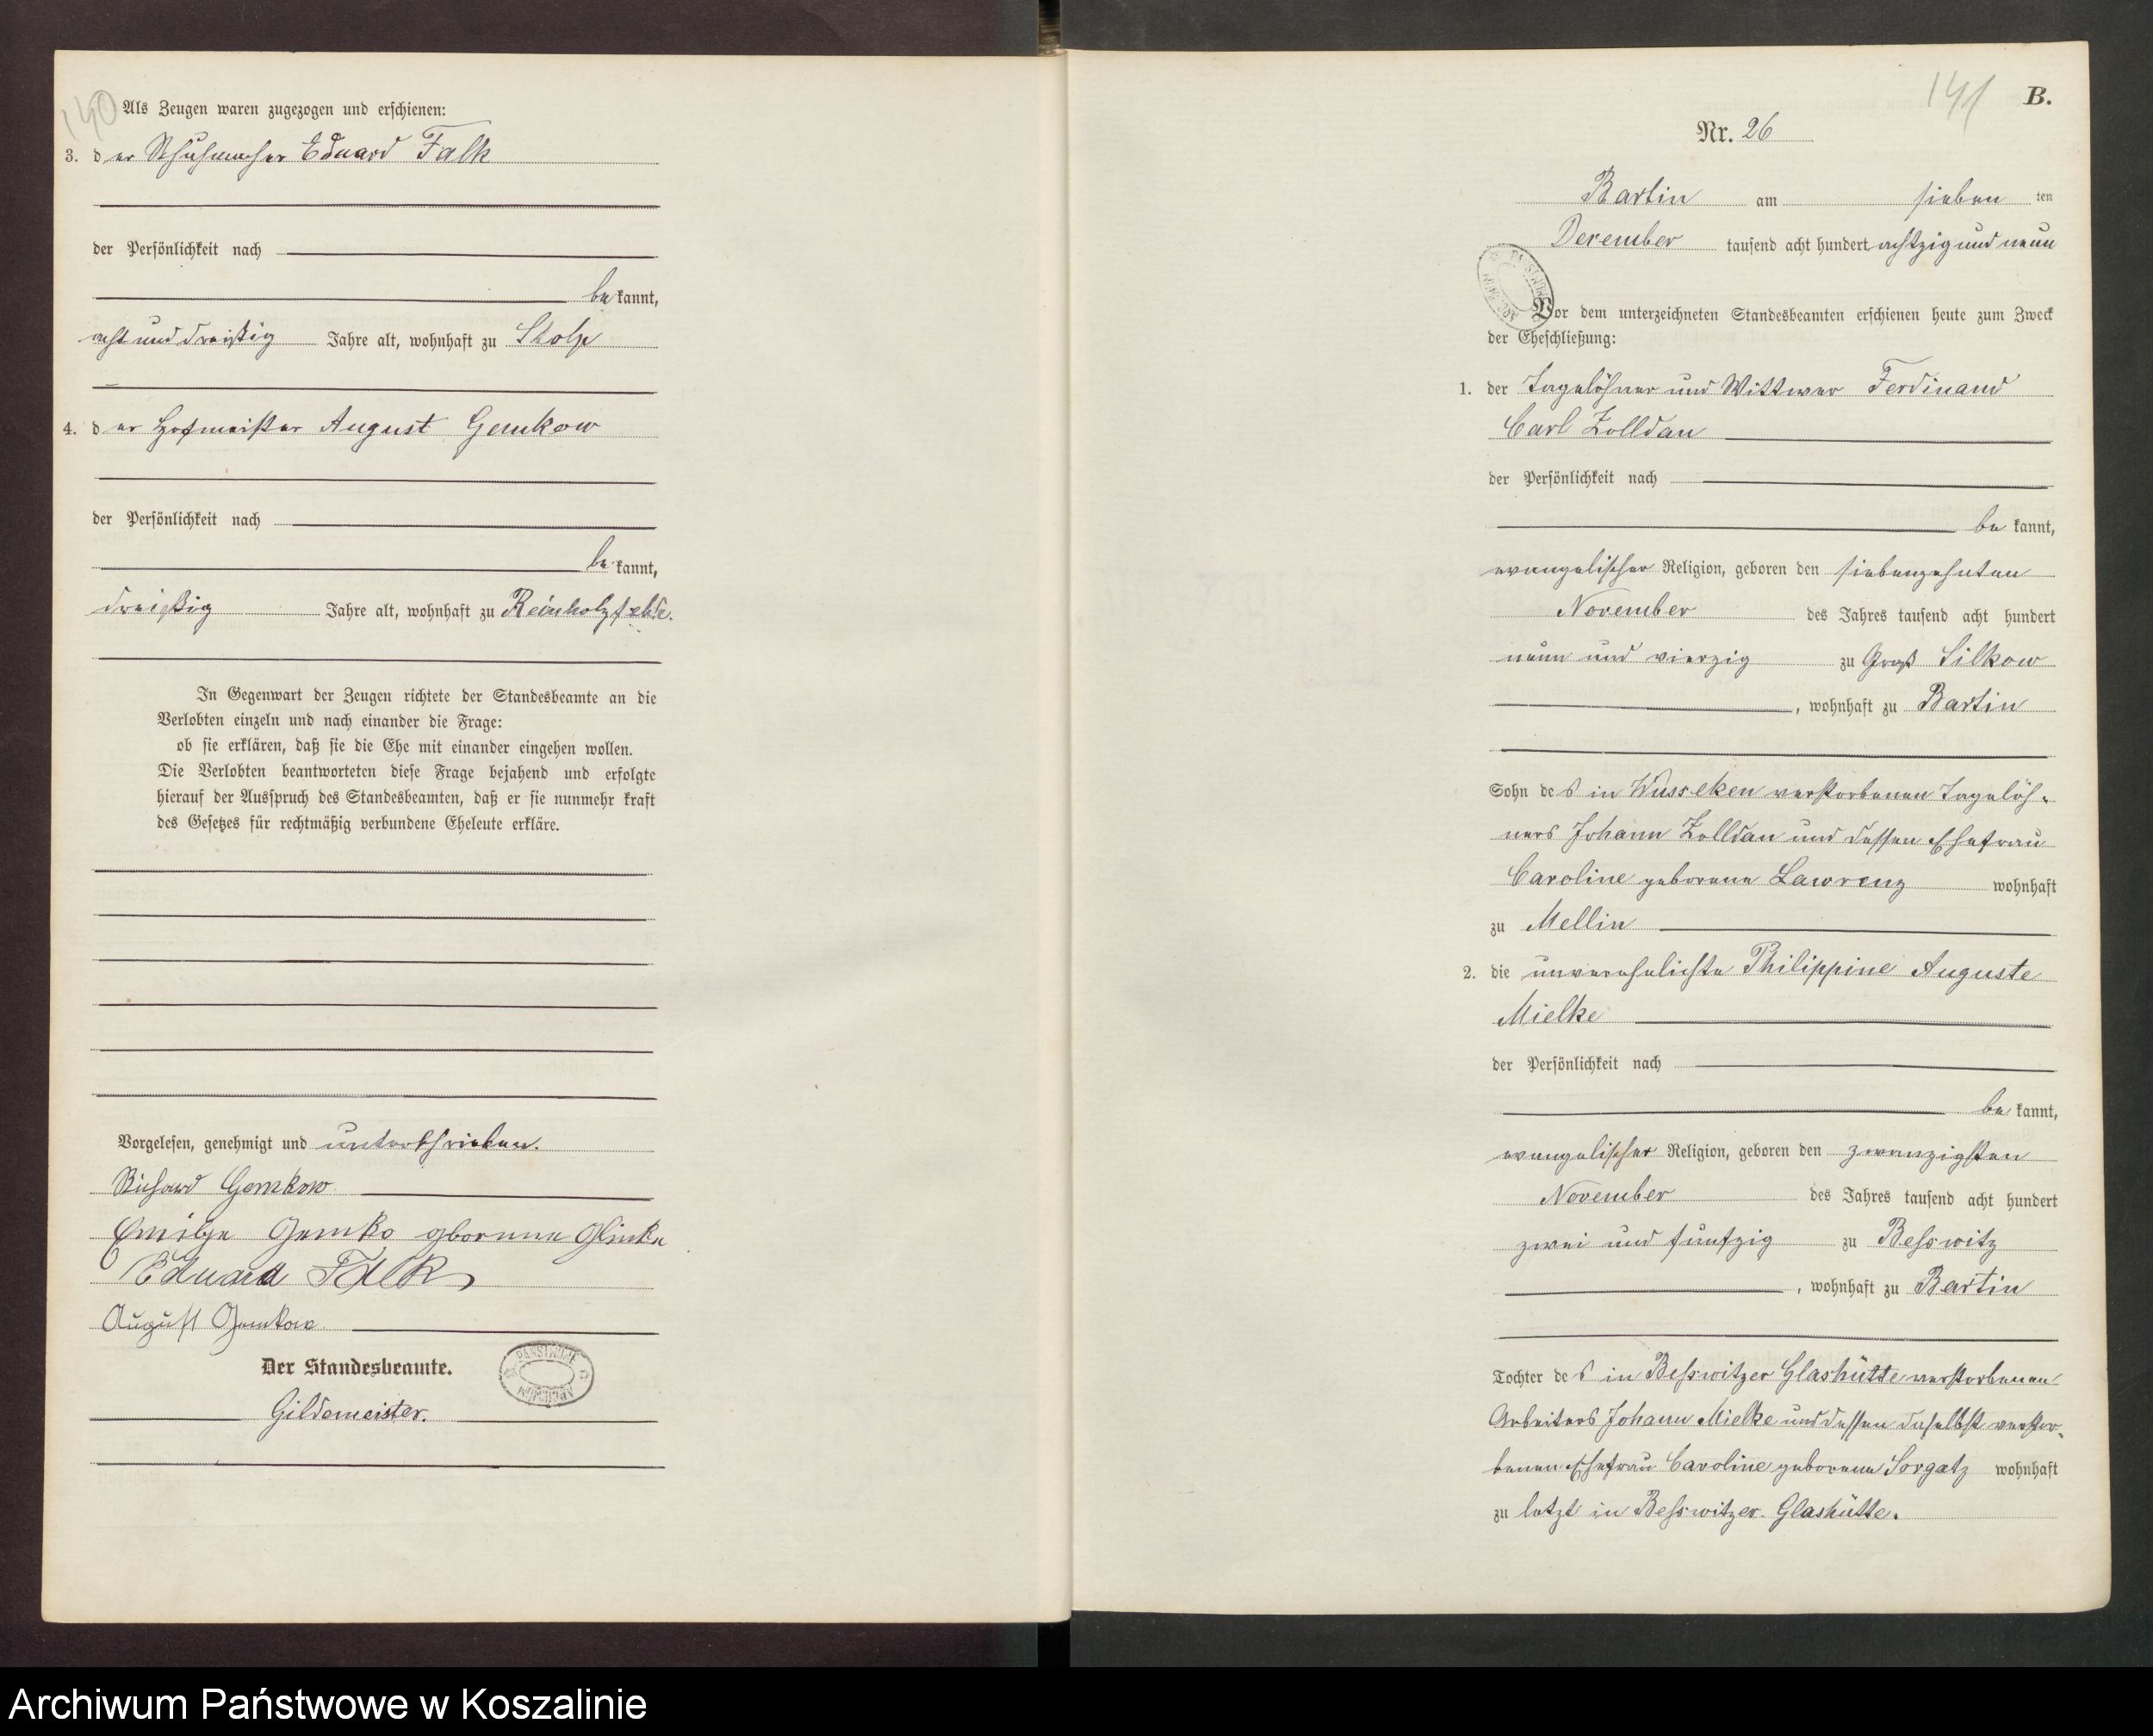 140
Als Zeugen waren zugezogen und erschienen:
3. der Schuhmacher Eduard Falk
der Persönlichkeit nach
bekannt,
acht und dreißig Jahre alt, wohnhaft zu Stolp
4. der Hofmeister August Gemkow
der Persönlichkeit nach
bekannt,
dreißig Jahre alt, wohnhaft zu Reinholzfelde.
In Gegenwart der Zeugen richtete der Standesbeamte an die
Verlobten einzeln und nach einander die Frage:
ob sie erklären, daß sie die Ehe mit einander eingehen wollen.
Die Verlobten beantworteten diese Frage bejahend und erfolgte
hierauf der Ausspruch des Standesbeamten, daß er sie nunmehr kraft
des Gesetzes für rechtmäßig verbundene Eheleute erkläre.
Vorgelesen, genehmigt und unterschrieben.
Richard Gemkow
Gemko gborene Glinke
Eduard Falk
August Gemkow
Der Standesbeamte.
PAŃSTWOWE ARCHIWUM
Gildemeister.
141
B.
Nr. 26
Bartin am siebenten
December tausend acht hundert achtzig und neun
Vor dem unterzeichneten Standesbeamten erschienen heute zum Zweck
der Eheschließung:
1. der Tagelöhner und Wittwer Ferdinand
Carl Zolldan
der Persönlichkeit nach
bekannt,
evangelischer Religion, geboren den siebenzehnten
November des Jahres tausend acht hundert
neun und vierzig zu Groß Silkow
, wohnhaft zu Bartin
Sohn des in Wusseken verstorbenen Tagelöh-
ners Johann Zolldan und dessen Ehefrau
Caroline geborene Lawrenz wohnhaft
zu Mellin
2. die unverehelichte Philippine Auguste
Mielke
der Persönlichkeit nach
bekannt,
evangelischer Religion, geboren den zwanzigsten
November des Jahres tausend acht hundert
zwei und fünfzig zu Besswitz
, wohnhaft zu Bartin
Tochter des in Besswitzer Glashütte verstorbenen
Arbeiters Johann Mielke und dessen daselbst verstor-
benen Ehefrau Caroline geborene Sorgatz wohnhaft
zu letzt in Besswitzer Glashütte.
Archiwum Państwowe w Koszalinie